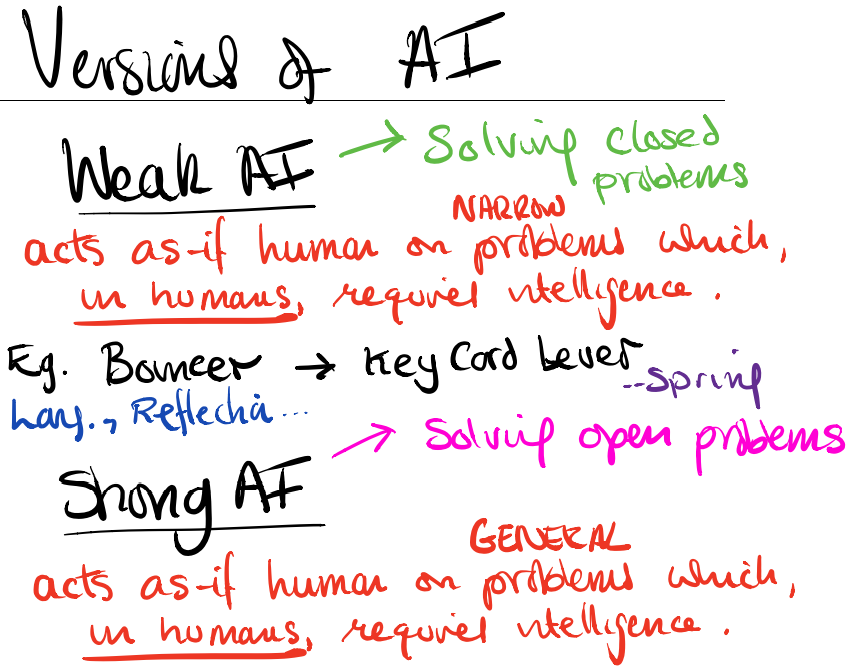 Versions of AI
Weak AI → Solving closed problems
NARROW
acts as-if human on problems which,
in humans, requires intelligence.
Eg. Bouncer → Key Card Lever
Lang., Reflection... ...spring
→ Solving open problems
Strong AI
GENERAL
acts as-if human on problems which,
in humans, requires intelligence.